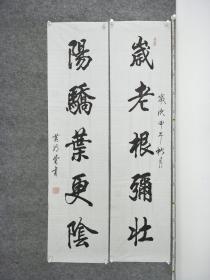 歲老根彌壯
歲次甲午秋月
陽驕葉更陰